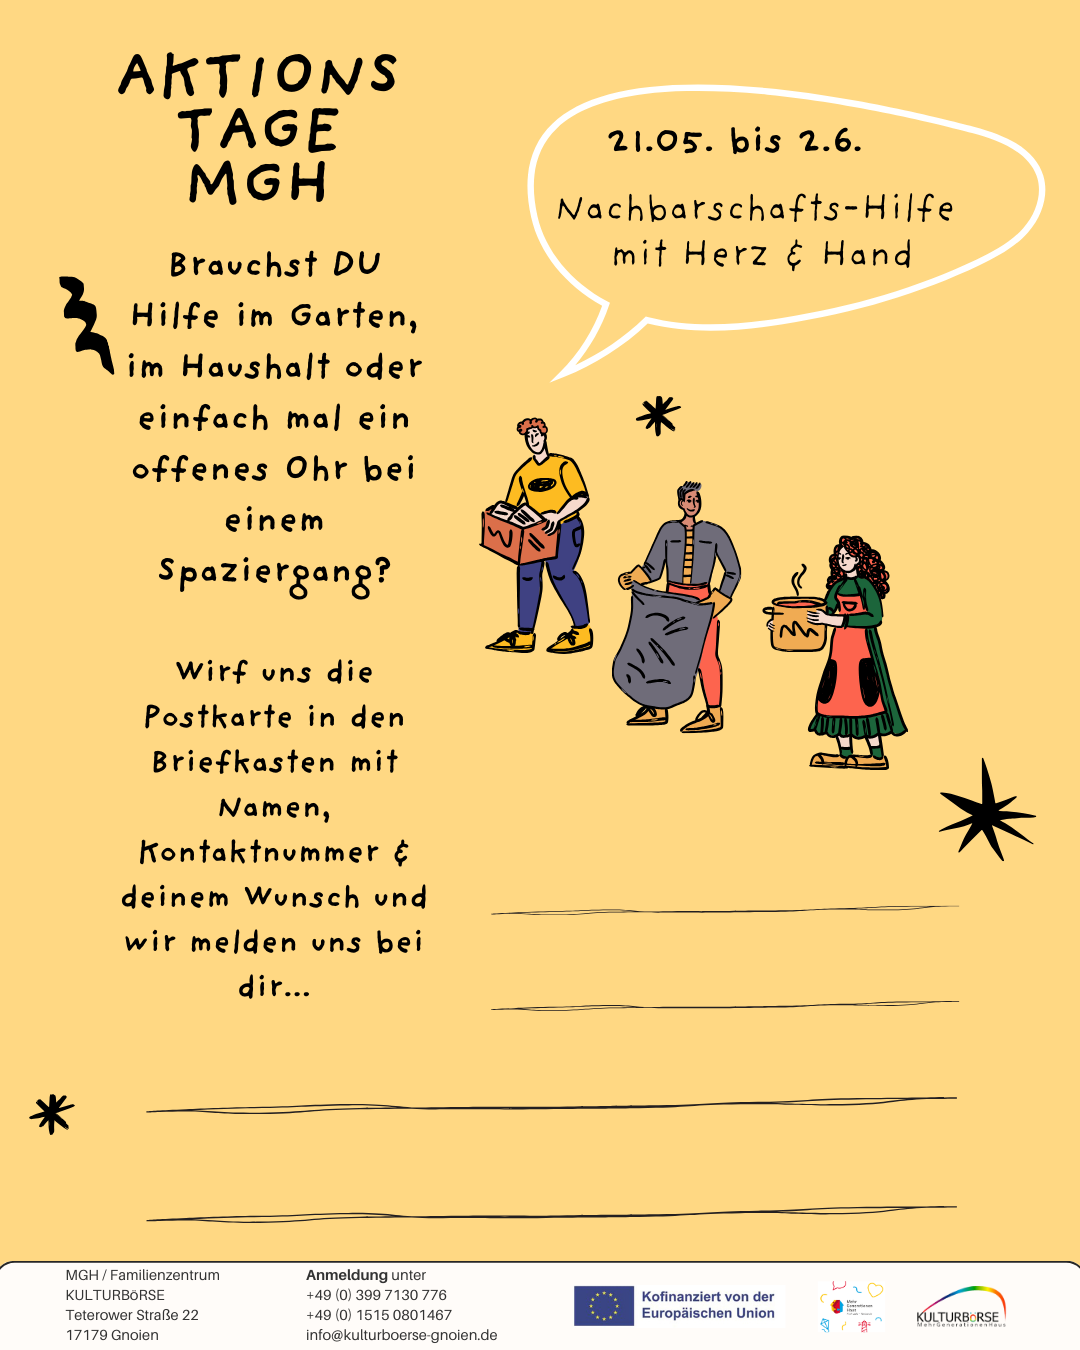 AKTIONS
TAGE
MGH
21.05. bis 2.6.
Nachbarschafts-Hilfe
mit Herz & Hand
Brauchst DU
Hilfe im Garten,
im Haushalt oder
einfach mal ein
offenes Ohr bei
einem
Spaziergang?
Wirf uns die
Postkarte in den
Briefkasten mit
Namen,
Kontaktnummer &
deinem Wunsch und
wir melden uns bei
dir...
MGH / Familienzentrum
KULTURBöRSE
Teterower Straße 22
17179 Gnoien
Anmeldung unter
+49 (0) 399 7130 776
+49 (0) 1515 0801467
info@kulturboerse-gnoien.de
Kofinanziert von der
Europäischen Union
KULTURBöRSE
MehrGenerationenHaus